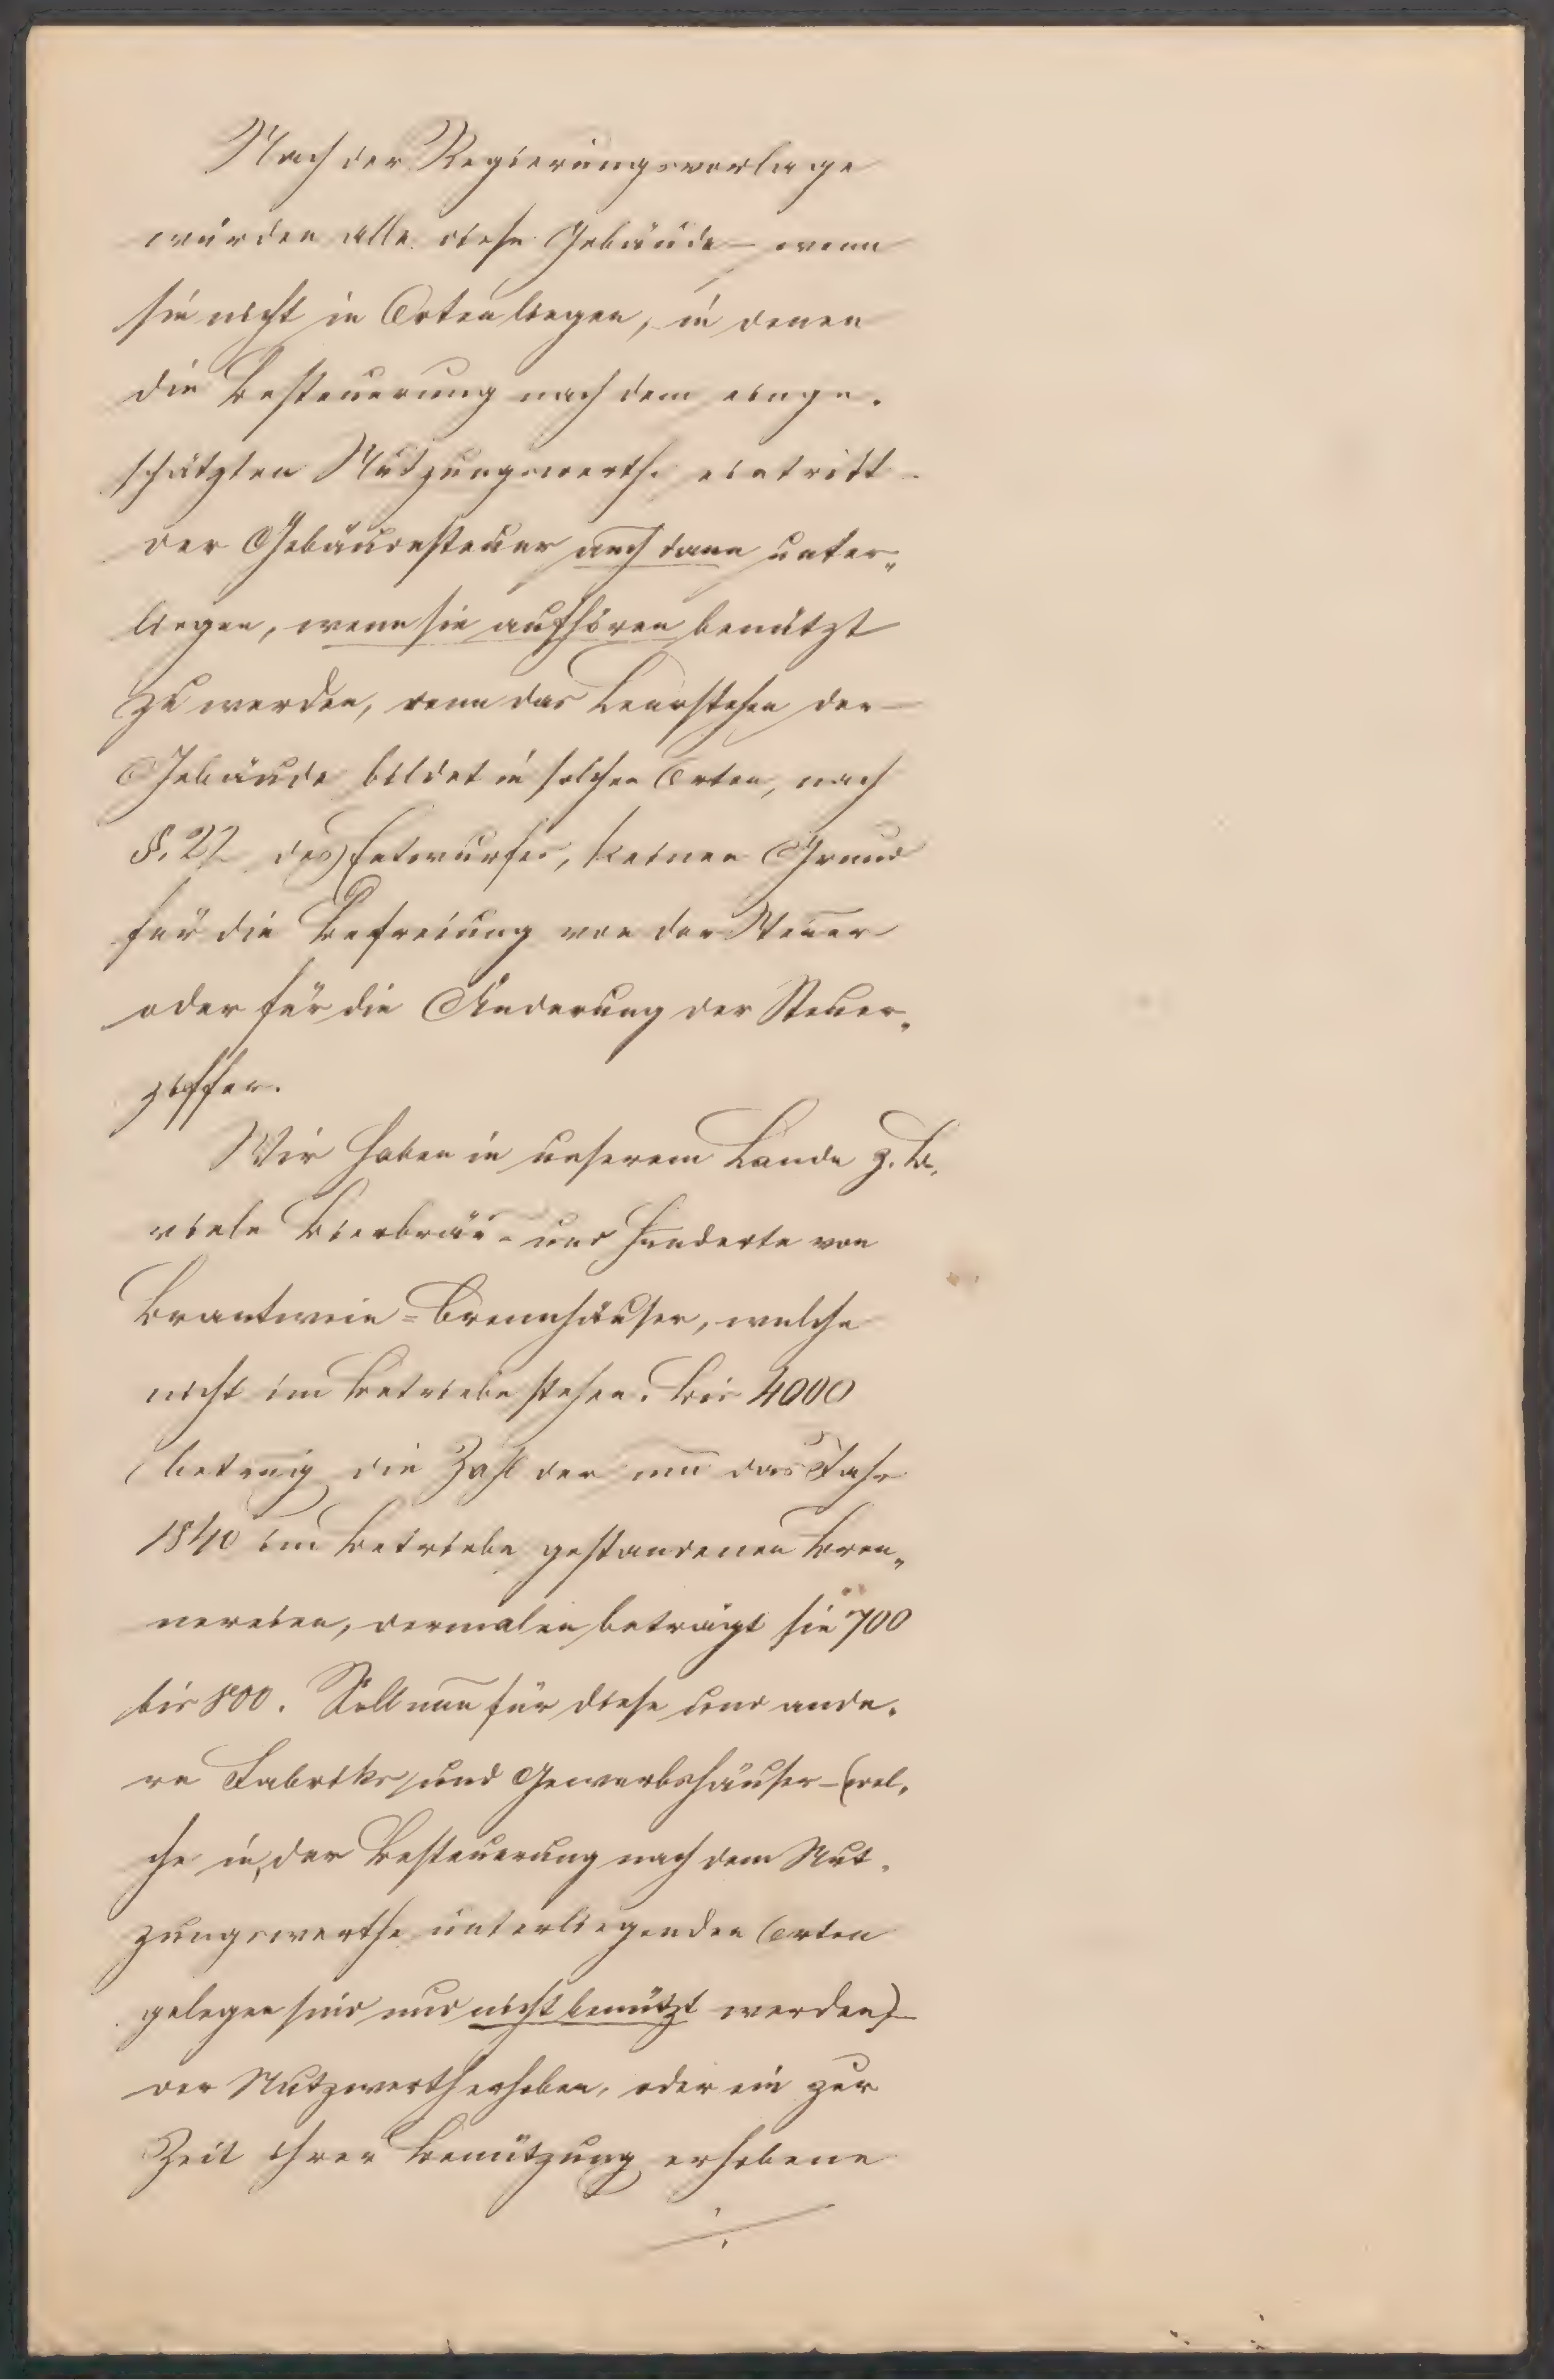 Nach der Regierungsvorlage
würden alle diese Gebäude – wenn
sie nicht in Orten liegen, in denen
die Besteuerung nach dem einge-
schätzten Nutzungswerthe eintritt –
der Gebäudesteuer auch dann unter-
liegen, wenn sie aufhören benützt
zu werden, denn das Leerstehen der
Gebäude bildet in solchen Orten, nach
§. 22 des Entwurfes, keinen Grund
für die Befreiung von der Steuer
oder für die Änderung der Steuer-
ziffer.
Wir haben in unserem Lande z. B.
viele Bierbräu- und Hunderte von
Brantwein=Brennhäuser, welche
nicht im Betriebe stehen. Bis 4000
betrug die Zahl der um das Jahr
1840 im Betriebe gestandenen Bren-
nereien, dermalen beträgt sie 700
bis 800. Soll nun für diese und ande-
re Fabriks und Gewerbshäuser – (wel-
che in, der Besteuerung nach dem Nut-
zungswerthe unterliegenden Orten
gelegen sind und nicht benützt werden) –
der Nutzwerth erhoben, oder ein zur
Zeit ihrer Benützung erhobene
./.